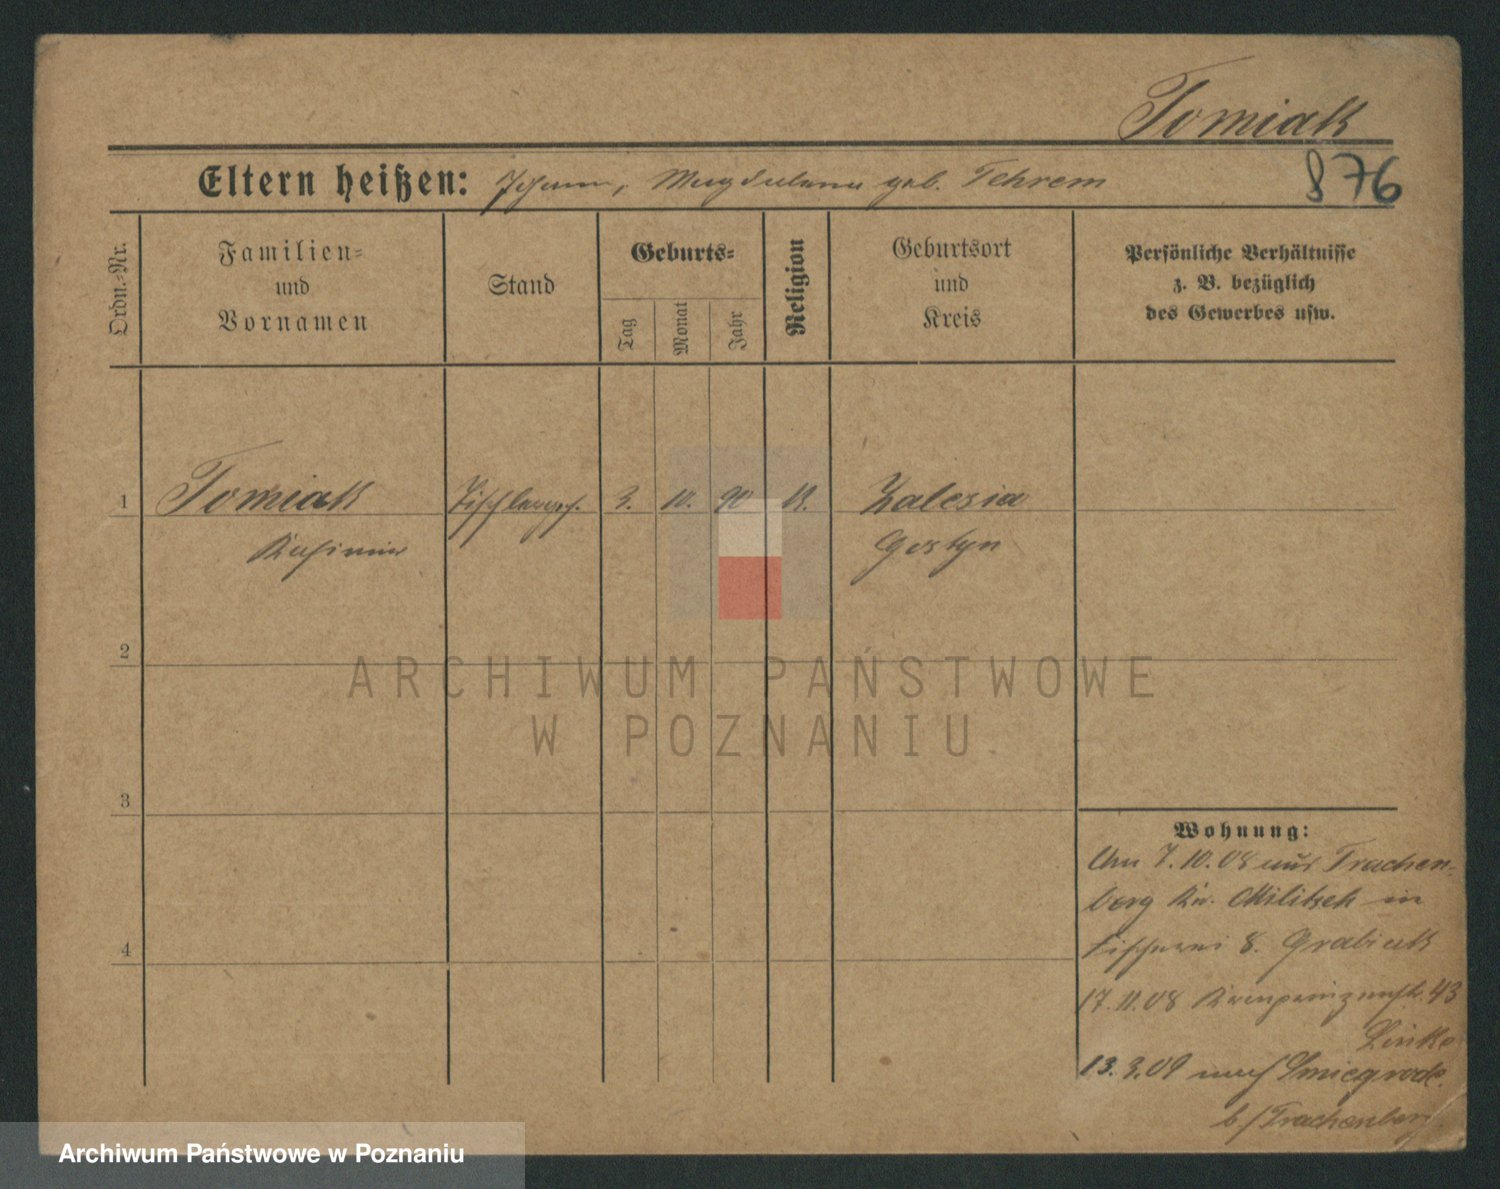 Tomiak
876
Eltern heißen: Johann, Magdalena geb. Tehrem
Ordn.-Nr.
Familien-
und
Vornamen
Stand
Geburts-
Tag
Monat
Jahr
Religion
Geburtsort
und
Kreis
Persönliche Verhältnisse
z. B. bezüglich
des Gewerbes usw.
1 Tomiak Tischlerges. 3. 10. 90 K. Zalesia
Kasimir Gostyn
2
3
4
Wohnung:
Am 7.10.08 aus Trachen-
berg Kr. Militsch in
8. Grabiak
17.11.08 Kronprinzenstr. 43
Linke
13.3.09 nach Smiegrode
b/Trachenberg
ARCHIWUM PAŃSTWOWE
W POZNANIU
Archiwum Państwowe w Poznaniu